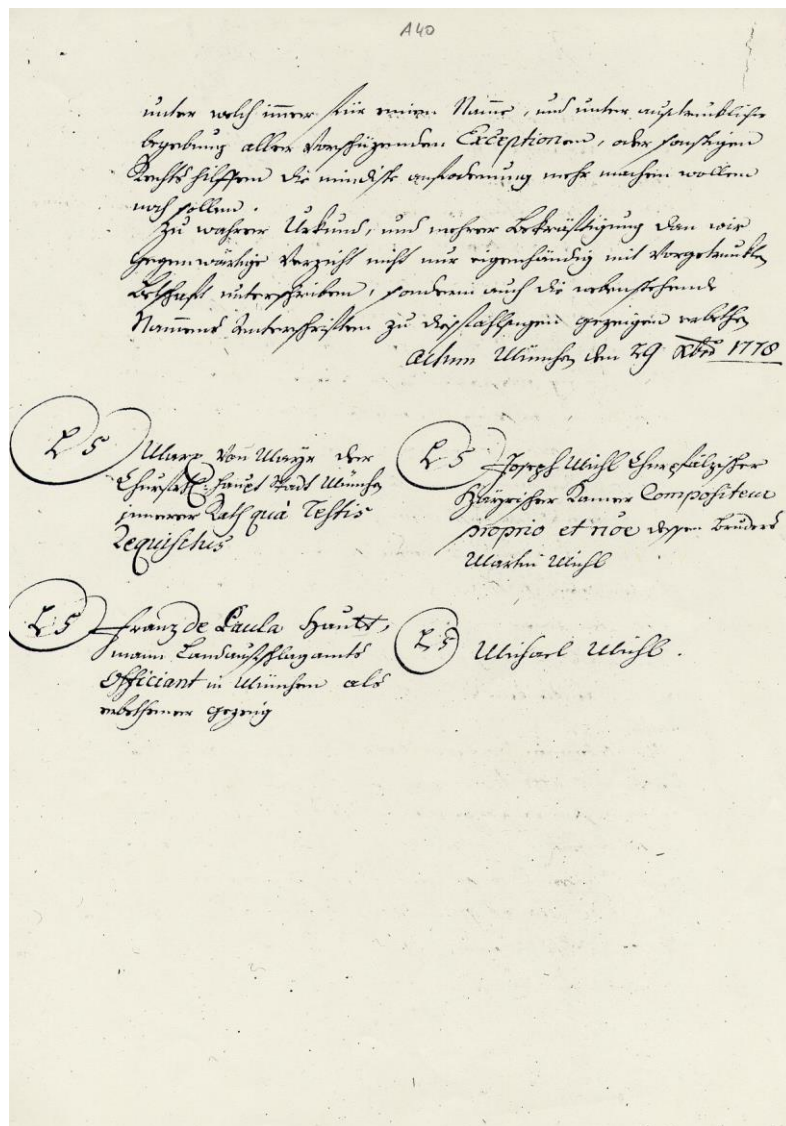 A40
unter welch immer für einen Namm, und unter austruklicher
begebung aller Vorschüzenden Exceptionen, oder sonstigen
Rechts hilffen die mindiste anfoderung mehr machen wollen
noch sollen.
Zu wahrer Urkund, und mehrer Bekräftigung dan wir
gegenwärtige Verzicht nicht nur eigenhändig mit Vorgetrukten
Betschaft unterschriben, sondern auch die nebenstehende
Nammens Unterschriften zu gezeigen erbethen
Actum München den 29 Xbris 1778
L S
Marx Von Mayr der
Churfrtl: Haupt Stadt München
innerer Rath quà Testis
Requisitus
L S
Joseph Michl Churpfälzischer
Bayrischer Kamer Compositeur
proprio et nõe dessen Bruders
Martin Michl
L S
Franz de Paula Hautt,
mann Landaufschlagamts
Officiant in München als
erbethener gezeig
L S
Michael Michl.